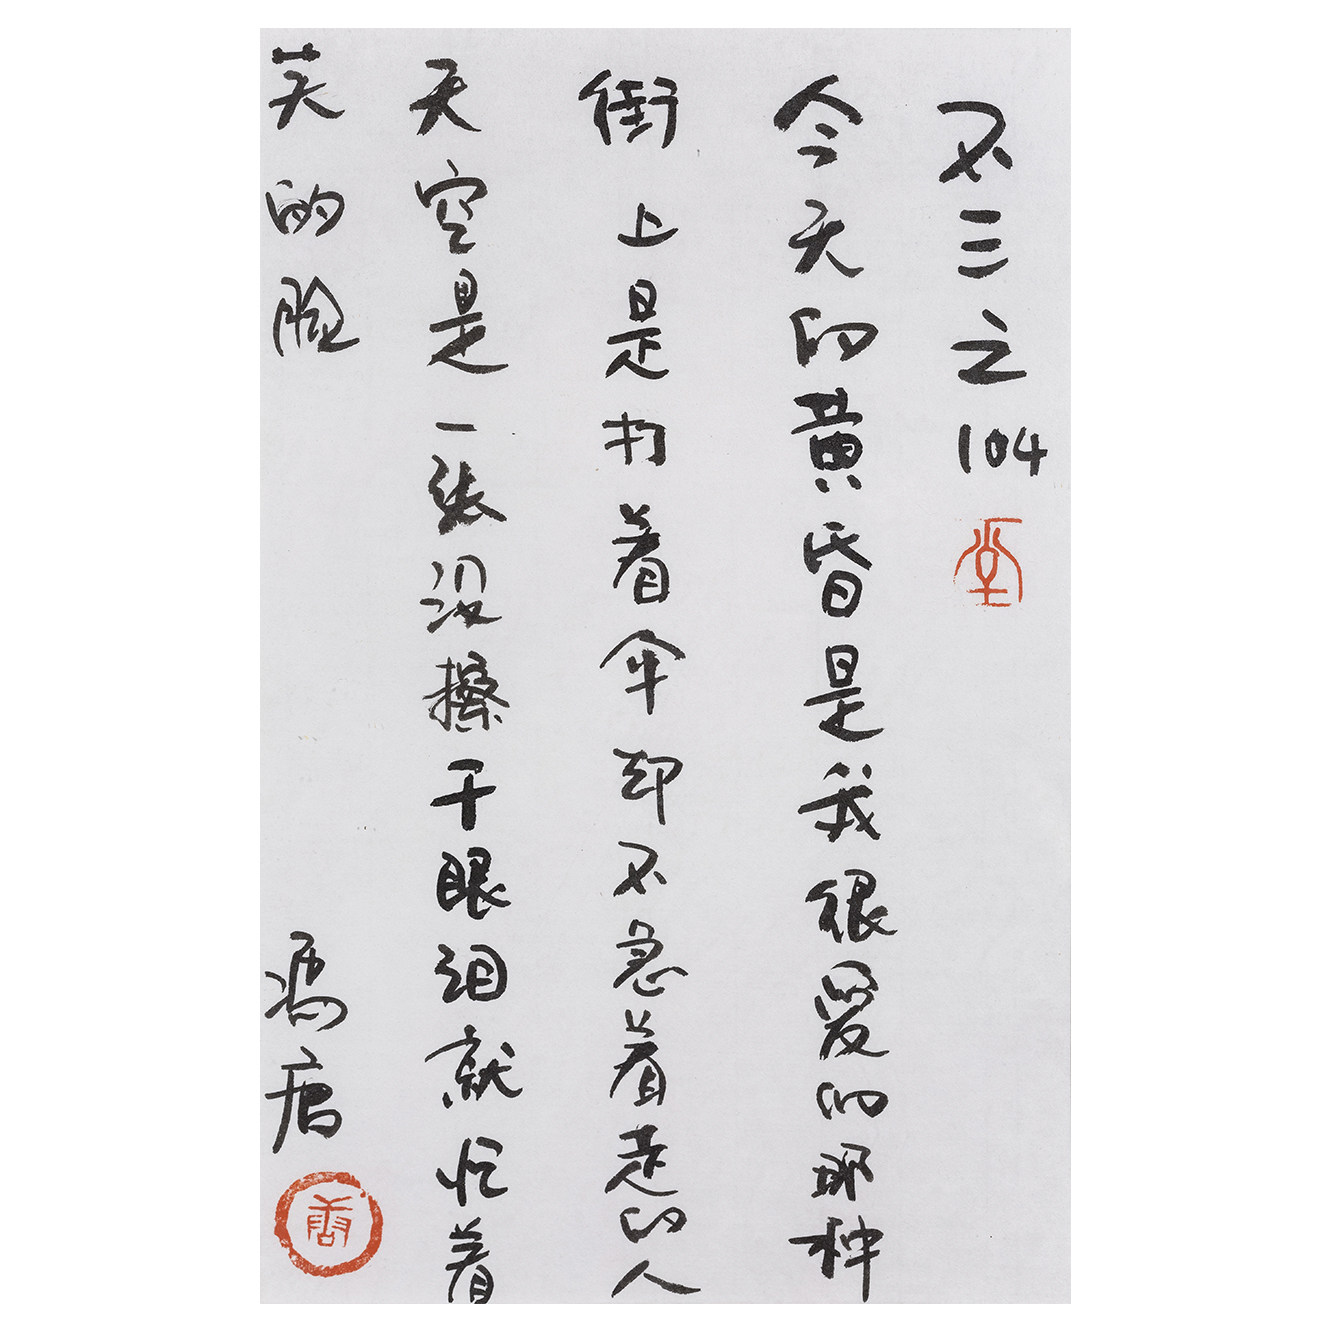 不三之104
今天的黄昏是我很爱的那种
街上是打着伞却不急着走的人
天空是一张没擦干眼泪就忙着
笑的脸
冯唐
唐